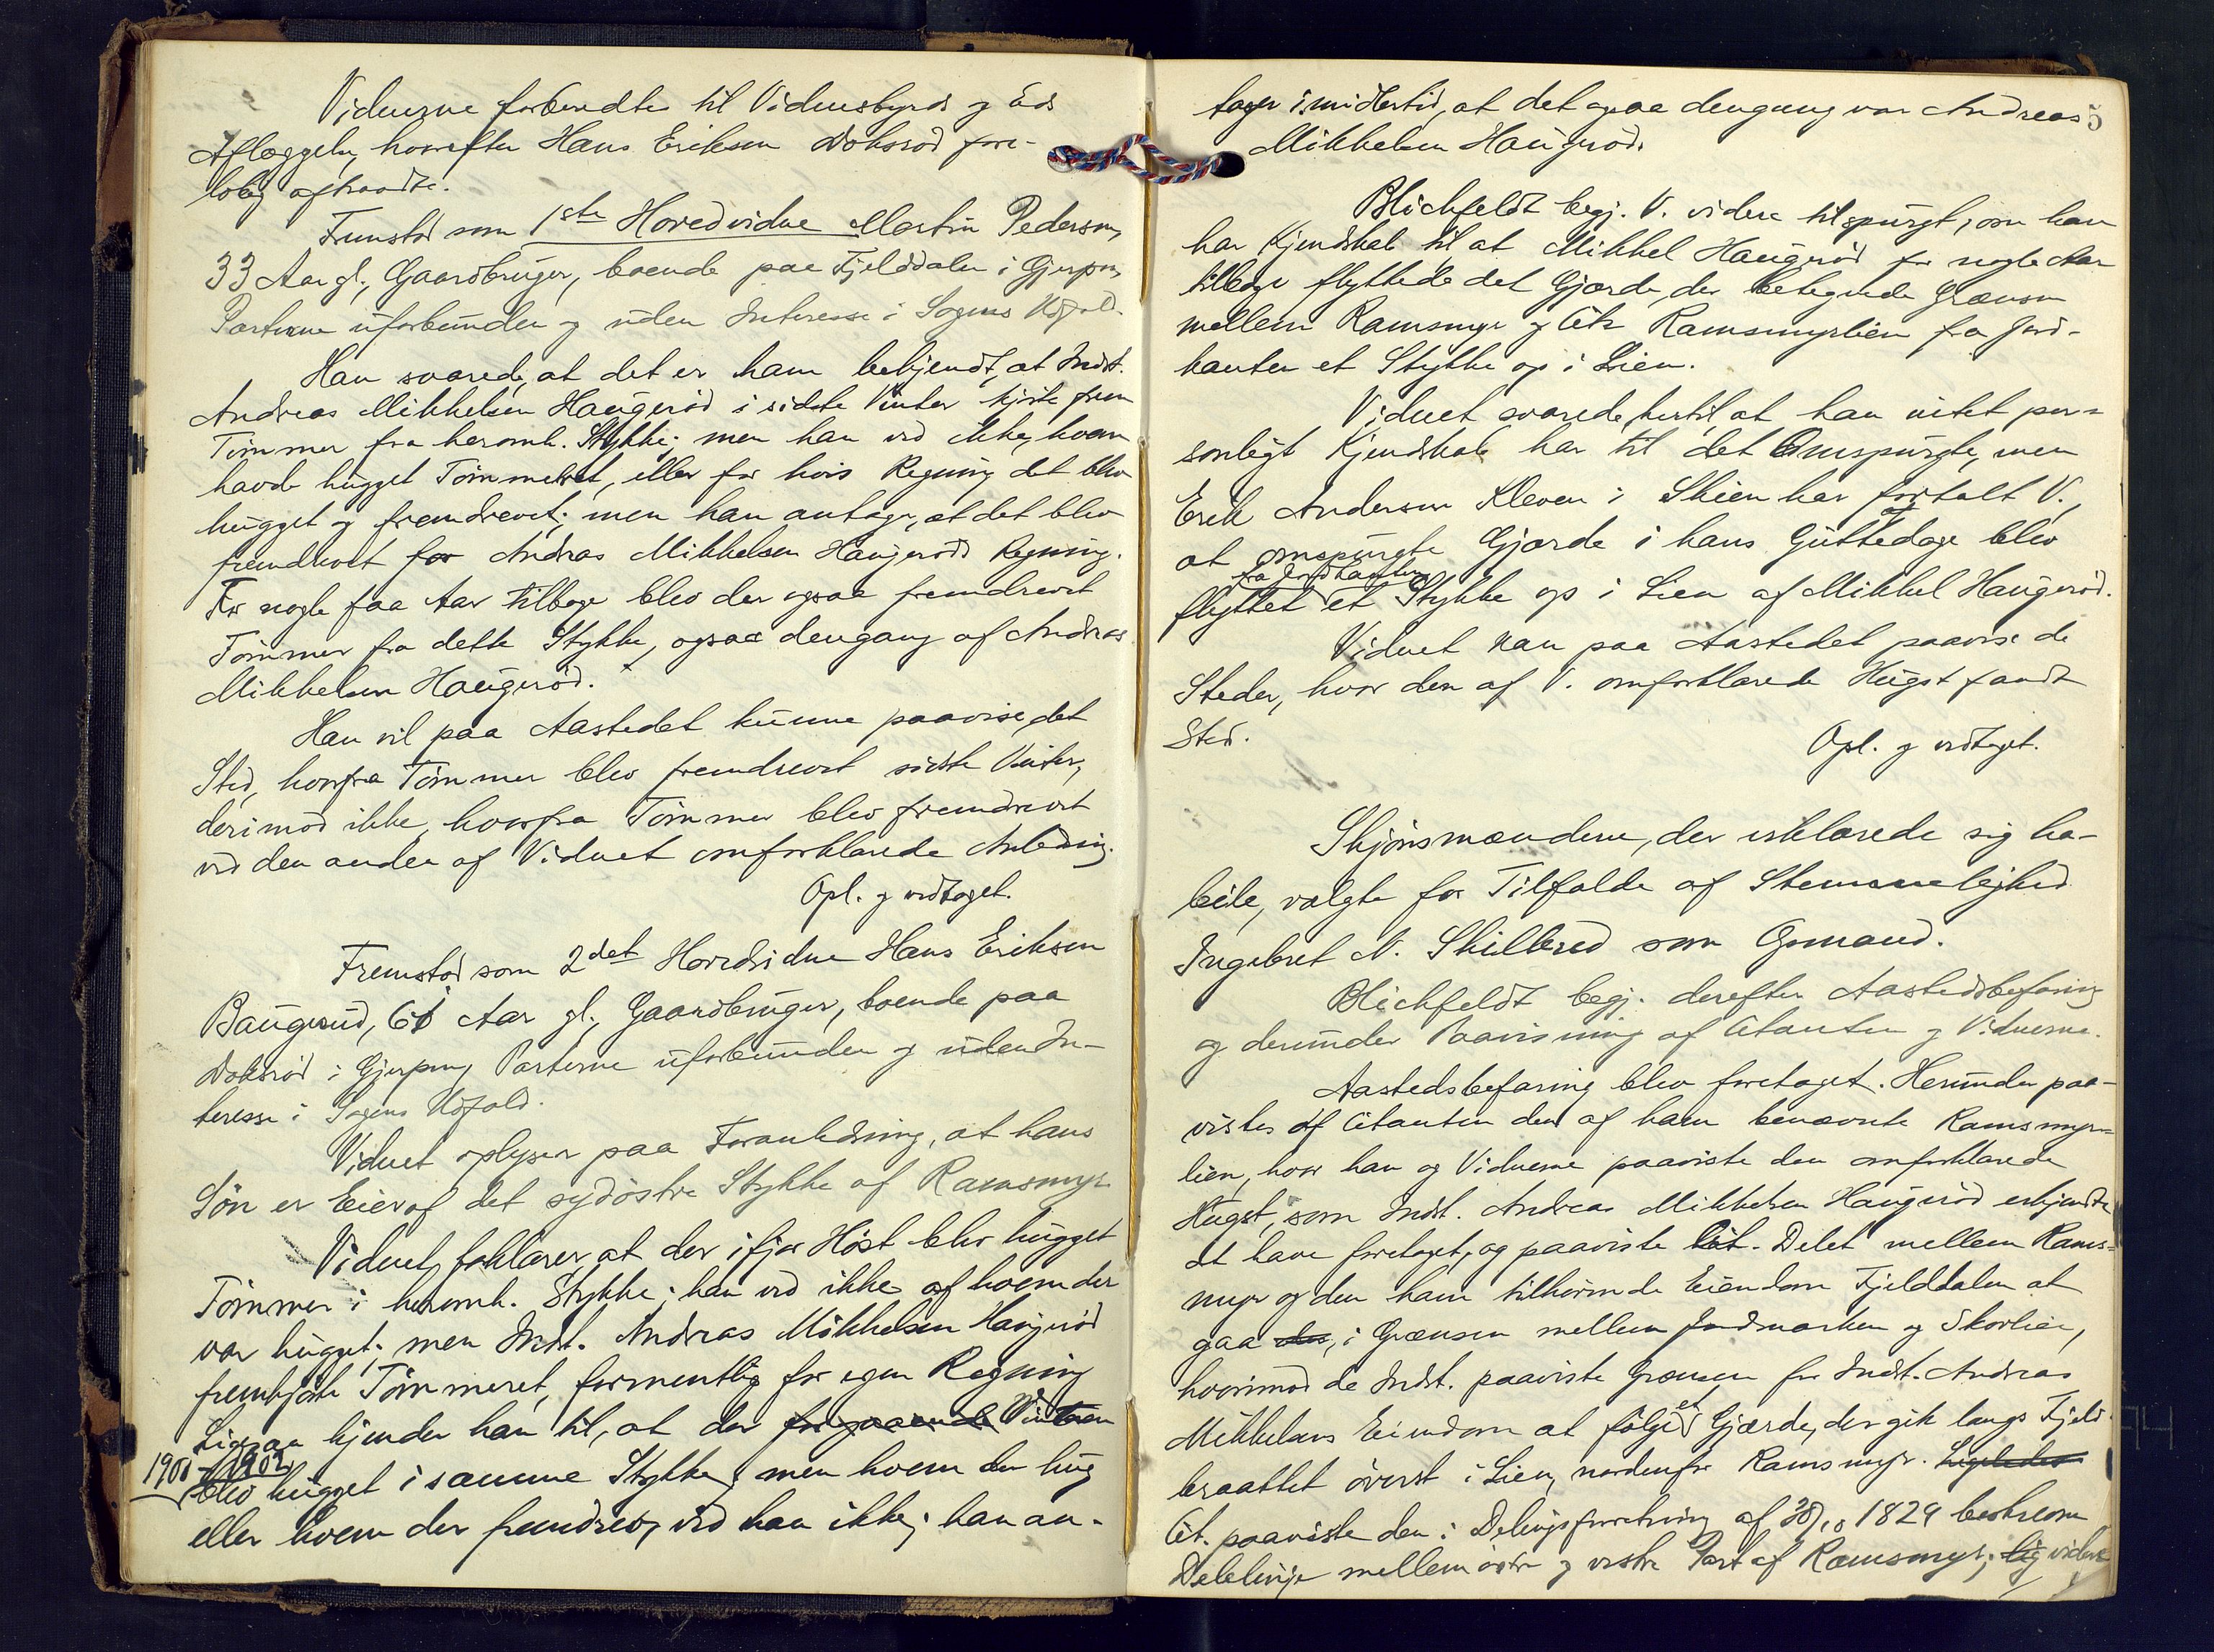 Vidnerne forberedte til Vidnesbyrds og Eds
Aflæggelse, hvorefter Hans Eriksen Doksrød fore-
løbig aftraadte.
Fremstod som 1ste Hovedvidne Martin Pedersen,
33 Aar gl., Gaardbruger, boende paa Fjelddalen i Gjerpen,
Parterne uforbunden og uden Interesse i Sagens Udfald.
Han svarede, at det er ham bekjendt, at Indst.
Andreas Mikkelsen Haugerød i sidste Vinter kjørte frem
Tømmer fra heromh. Stykke; men han ved ikke, hvem
havde hugget Tømmeret, eller for hvis Regning det blev
hugget og fremdrevet; men han antager, at det blev
fremdrevet for Andreas Mikkelsen Haugerøds Regning.
For nogle faa Aar tilbage blev der ogsaa fremdrevet
Tømmer fra dette Stykke, ogsaa dengang af Andreas
Mikkelsen Haugerød.
Han vil paa Aastedet kunne paavise det
Sted, hvorfra Tømmer blev fremdrevet sidste Vinter,
derimod ikke, hvorfra Tømmer blev fremdrevet
ved den anden af Vidnet omforklarede Anledning.
Opl. og vedtaget.
Fremstod som 2det Hovedvidne Hans Eriksen
Baugerud, 61 Aar gl., Gaardbruger, boende paa
Doksrød i Gjerpen, Parterne uforbunden og uden In-
teresse i Sagens Udfald.
Vidnet oplyser paa Foranledning, at hans
Søn er Eier af det sydøstre Stykke af Ramsmyr.
Vidnet forklarer, at der ifjor Høst blev hugget
Tømmer i heromh. Stykke; han ved ikke af hvem der
var hugget; men Indst. Andreas Mikkelsen Haugerød
fremkjørte Tømmeret, formentlig for egen Regning
Ligsaa kjender han til, at der forgaaende Vinteren
1901-1902
blev hugget i samme Stykke; men hvem der hug
eller hvem der fremdrev, ved han ikke; han an-
5
tager imidlertid, at det ogsaa dengang var Andreas
Mikkelsen Haugerød.
Blichfeldt begj. V. videre tilspurgt, om han
har Kjendskab til, at Mikkel Haugerød for nogle Aar
tilbage flyttede det Gjærde, der betegnede Grænsen
mellem Ramsmyr og Cits Ramsmyrlien fra Jord-
kanten et Stykke op i Lien.
Vidnet svarede hertil, at han intet per-
sonligt Kjendskab har til det Omspurgte, men
Erik Andersen Kleven i Skien har fortalt V.,
at omspurgte Gjærde i hans Guttedage blev
fra Jordkanten
flyttet et Stykke op i Lien af Mikkel Haugerød.
Vidnet kan paa Aastedet paavise de
Steder, hvor den af V. omforklarede Hugst fandt
Sted.
Opl. og vedtaget.
Skjønsmændene, der erklærede sig ha-
bile, valgte for Tilfælde af Stemmelighed
Ingebret N. Skilbred som Opmand.
Blichfeldt begj. derefter Aastedsbefaring
og derunder Paavisning af Citanten og Vidnerne.
Aastedsbefaring blev foretaget. Herunder paa-
vistes af Citanten den af ham benævnte Ramsmyr-
lien, hvor han og Vidnerne paaviste den omforklarede
Hugst, som Indst. Andreas Mikkelsen Haugerød erkjendte
at have foretaget, og paaviste Cit. Delet mellem Rams-
myr og den ham tilhørende Eiendom Fjelddalen at
gaa der, i Grænsen mellem Jordmarken og Skovlien,
hvorimod de Indst. paaviste Grænsen for Indst. Andreas
Mikkelsens Eiendom at følge et Gjærde, der gik langs Fjeld-
braattet øverst i Lien, nordenfor Ramsmyr. Ligeledes
Cit. paaviste den i Delingsforretning af 30/10 1829 beskrevne
Delelinje mellem østre og vestre Part af Ramsmyr; lig videre